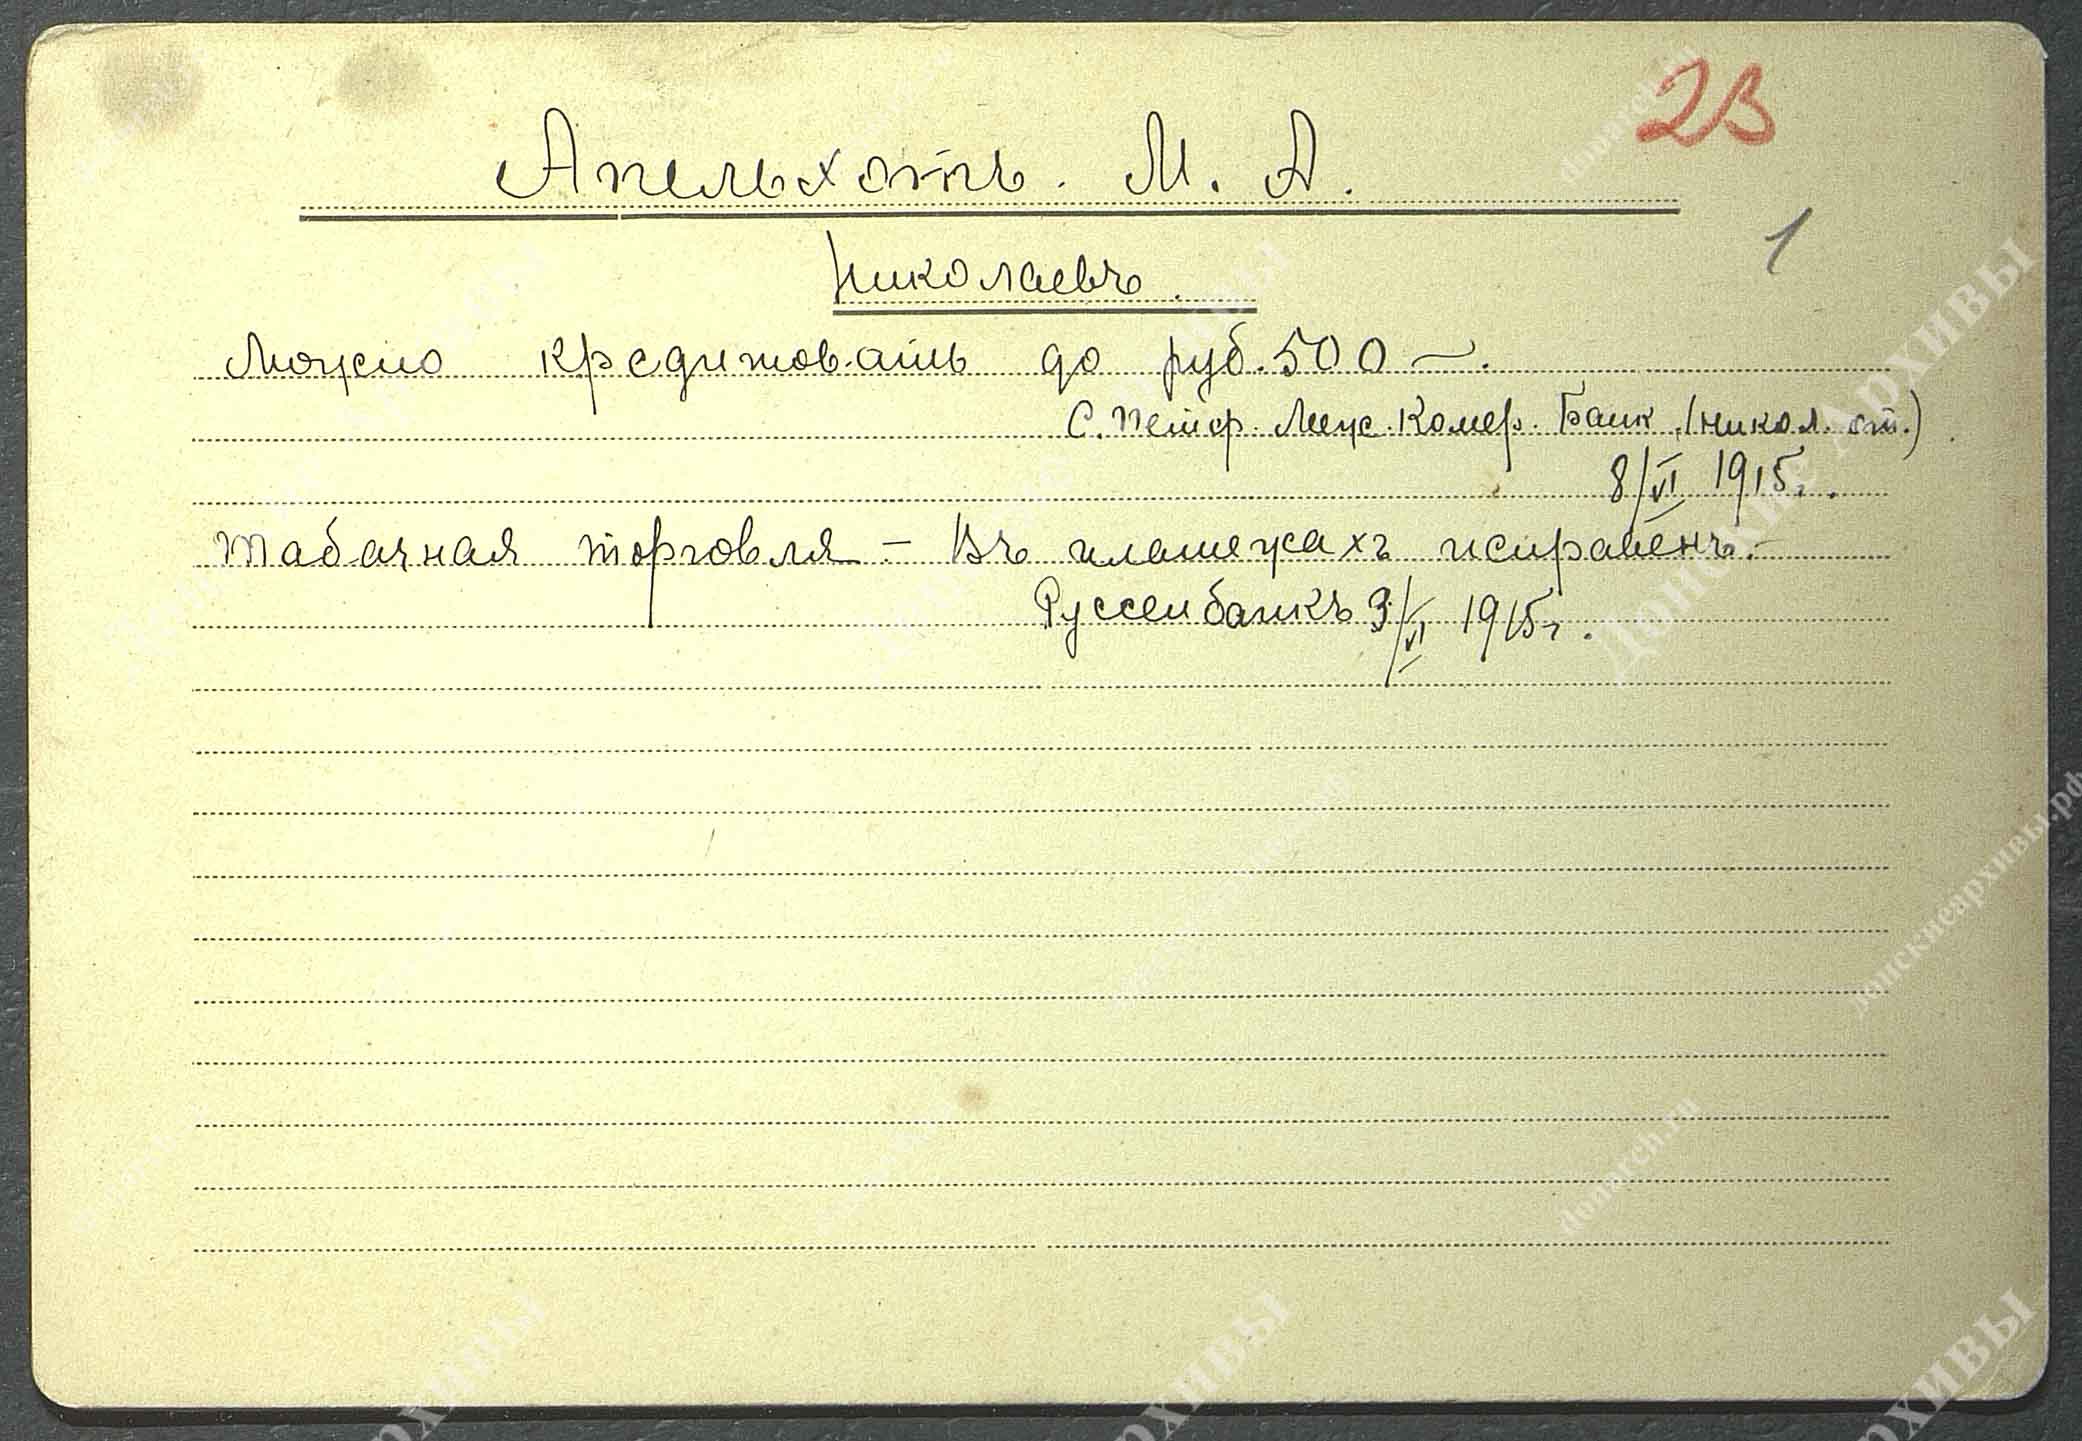 23
Апельхотъ. М. А.
1
Николаевъ.
Можно кредитовать до руб. 500 —.
С. Петер. Меж. Комер. Банк. (Никол. от.)
8/VI 1915г.
Табачная торговля — Въ платежахъ исправенъ. —
Руссенбанкъ 3/VI 1915г.
Донские Архивы
donarch.ru
донскиеархивы.рф